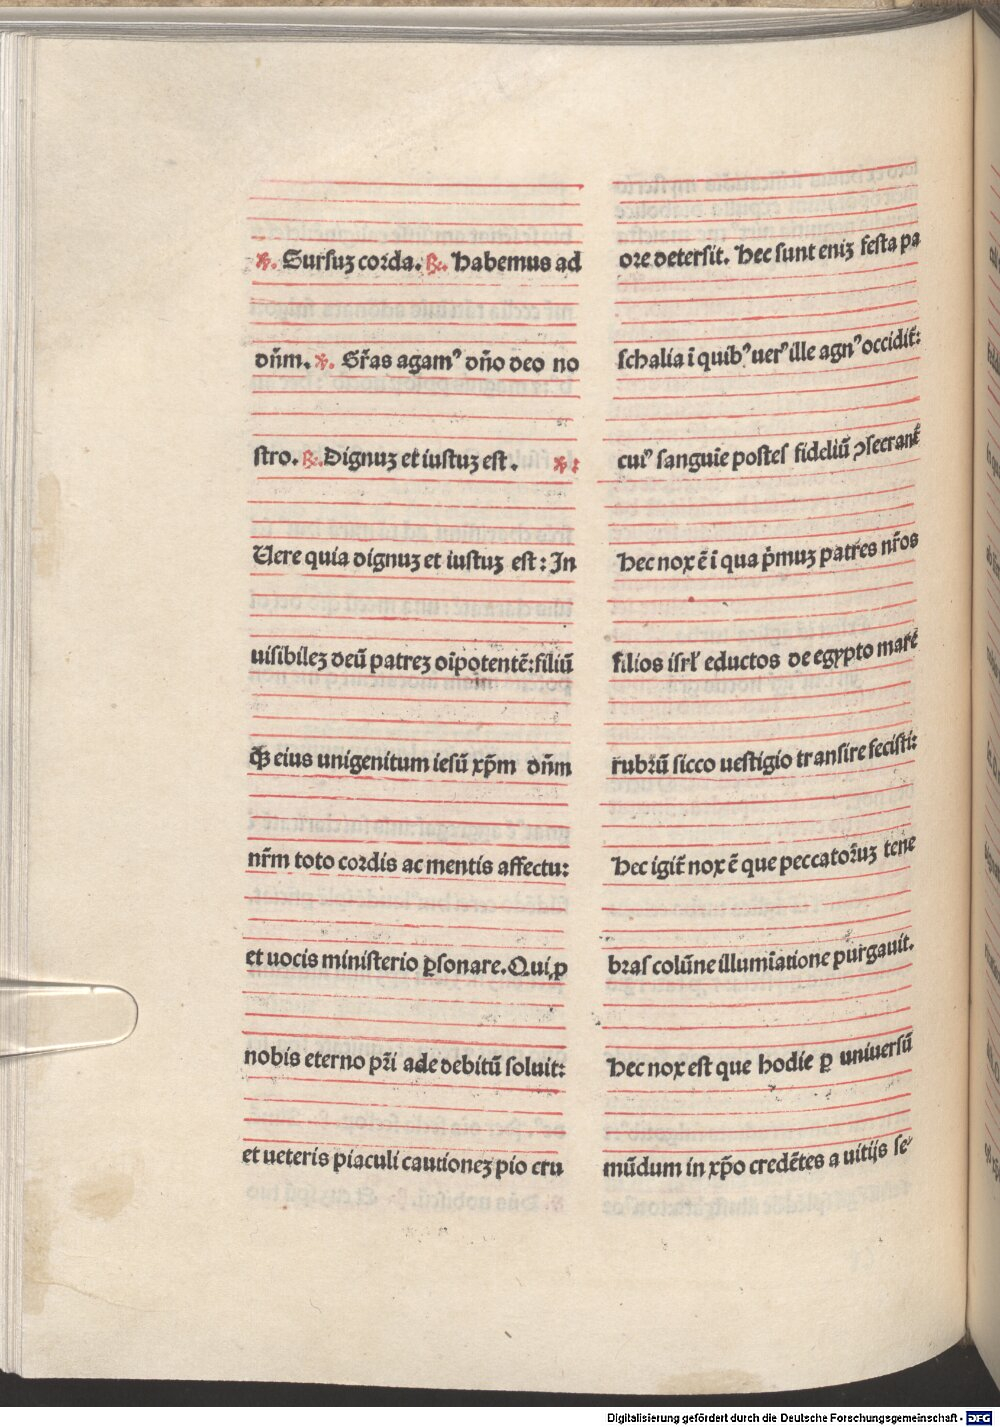 ℣. Sursuꝫ corda. ℟. Habemus ad
dñm. ℣. Gr̃as agamꝰ dño deo no
stro. ℟. Dignuꝫ et iustuꝫ est. ℣:
Uere quia dignuꝫ et iustuꝫ est: In
uisibileꝫ deũ patreꝫ oĩpotentẽ: filiũ
qꝫ eius unigenitum iesũ xp̃m dñm
nr̃m toto cordis ac mentis affectu:
et uocis ministerio ꝑsonare. Qui ꝓ
nobis eterno pr̃i ade debitũ soluit:
et ueteris piaculi cautioneꝫ pio cru
ore detersit. Hec sunt eniꝫ festa pa
schalia ĩ quibꝰ uerꝰ ille agnꝰ occidit̃:
cuiꝰ sanguĩe postes fideliũ ꝯsecrant̃
Hec nox ẽ ĩ qua p̃muꝫ patres nr̃os
filios isrl̃ eductos de egypto mare
rubꝛũ sicco uestigio transire fecisti:
Hec igit̃ nox ẽ que peccatoꝛ̃uꝫ tene
bras colũne illumĩatione purgauit.
Hec nox est que hodie ꝑ uniuersũ
mũdum in xp̃o credẽtes a uitijs se
Digitalisierung gefördert durch die Deutsche Forschungsgemeinschaft - DFG